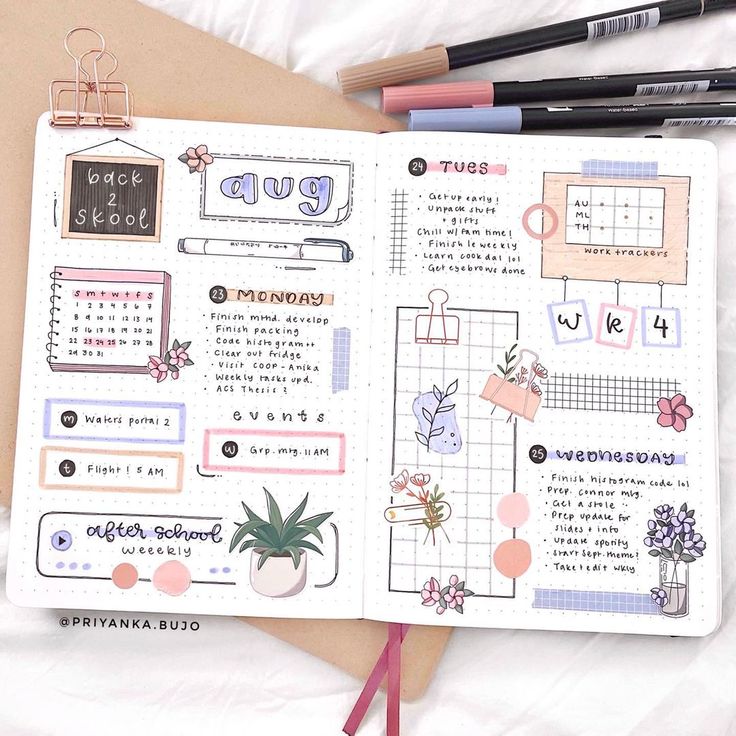 back
2
skool
aug
s m t w t f s
1 2 3 4 5 6 7
8 9 10 11 12 13 14
15 16 17 18 19 20 21
22 23 24 25 26 27 28
29 30 31
m Waters portal 2
t Flight! 5 AM
after school
weeekly
23 MONDAY
Finish mthd. develop
• Finish packing
Code histogram++
Clear out fridge
• Visit COOP - Anika
Weekly tasks upd.
• ACS Thesis?
events
W Grp. mtg. 11 AM
24 TUES
• Get up early!
• Unpack stuff
+ gifts
Chill w/ fam time!
• Finish le weekly
• Learn cook dal lol
• Get eyebrows done
AU
ML
TH
work trackers
wk 4
25 Wednesday
• Finish histogram code lol
• Prep. Connor mtg.
• Get a stole
• Prep update for
slides + info
• update spotify
• start sept. theme!
• Take + edit wkly
Water based
Water based
@PRIYANKA.BUJO